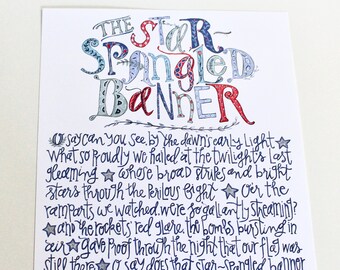 THE STAR-
SPANGLED
BANNER
O say can you see, by the dawn's early light
what so proudly we hailed at the twilight's last
gleaming whose broad stripes and bright
stars through the perilous fight o'er the
ramparts we watched, were so gallantly streaming?
and the rockets red glare, the bombs bursting in
air gave proof through the night that our flag was
still there O say does that star-spangled banner